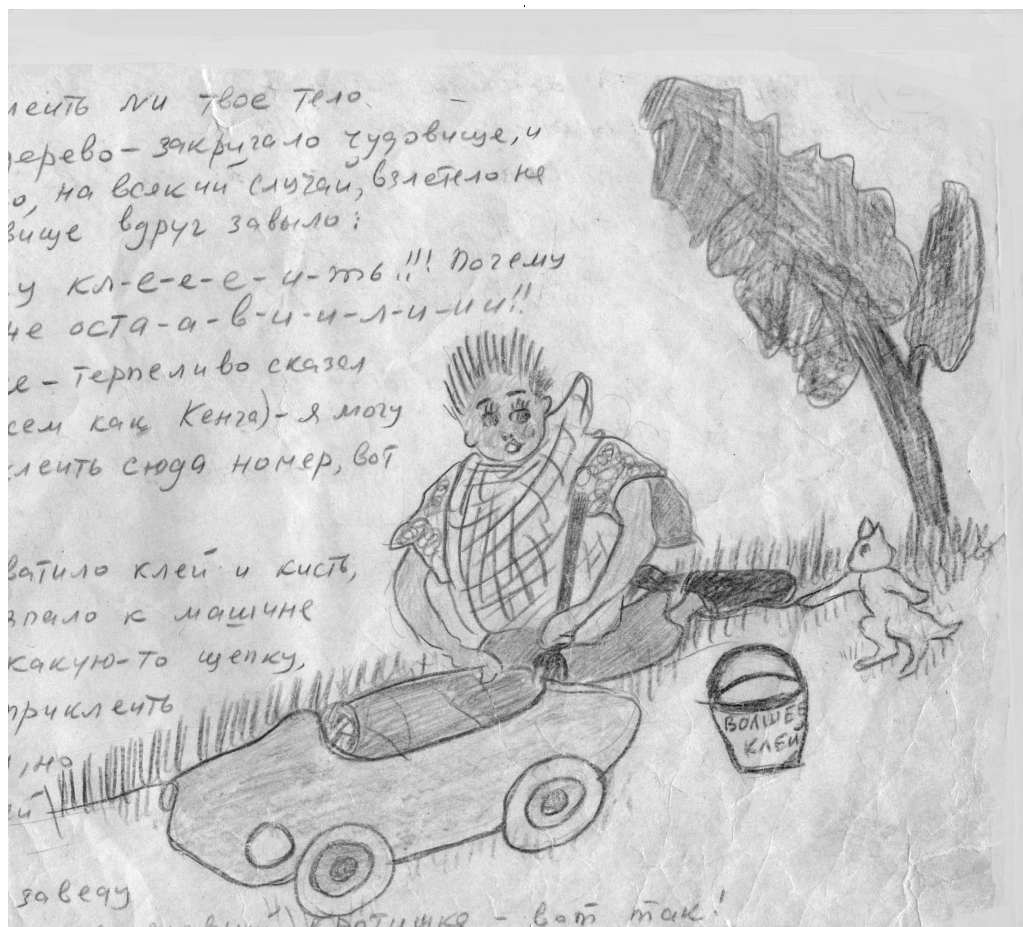 леить ли твое тело.
дерево - закричало чудовище, и
о, на всякий случай, взлетело на
вище вдруг завыло:
у кл-е-е-е-и-ть!!! Почему
не оста-а-в-и-и-л-и-и-и!!
е - терпеливо сказал
сем как Кенга) - я могу
леить сюда номер, вот
ватило клей и кисть,
впало к машине
какую-то щепку,
приклеить
, но
ей
ВОЛШЕБ
КЛЕЙ
заведу
кротишка - вот так!